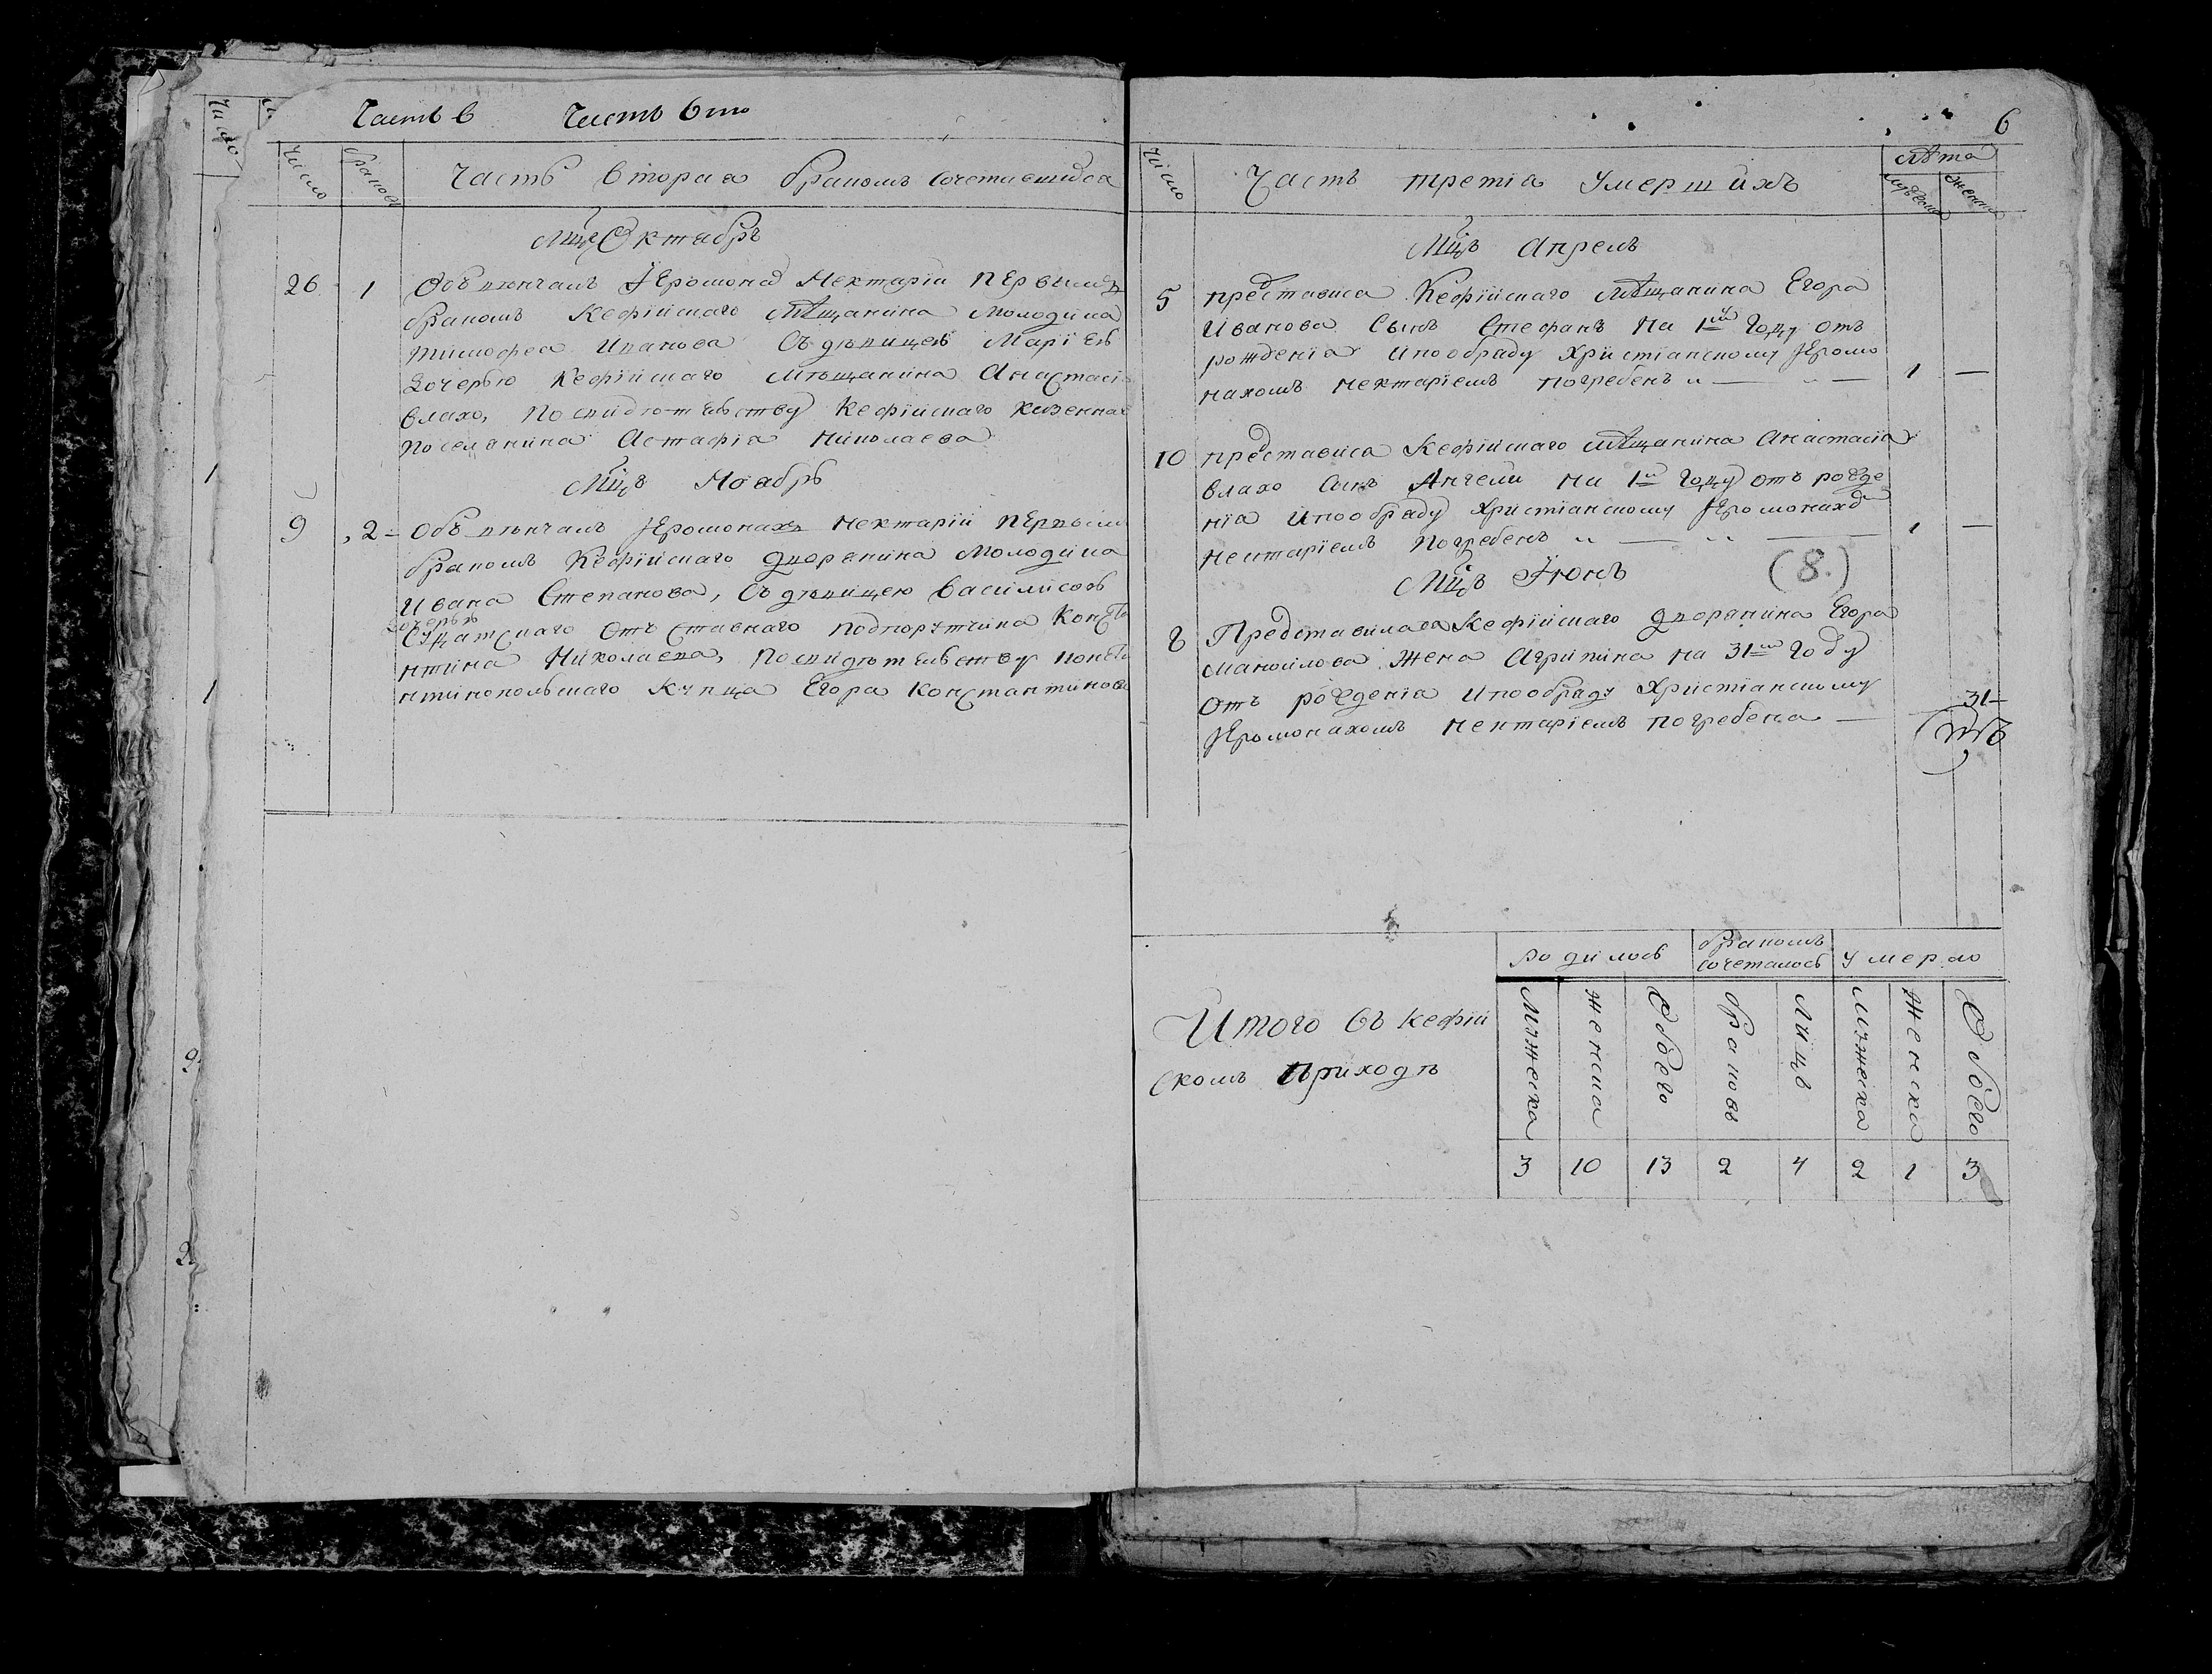 Часть в Часть вто
Число
Браковъ
Часть вторая бракомъ сочетавшихся
Мцъ Октябрь
26 1 Объ вѣнчалъ Іеромонах Нектарїи первымъ
бракомъ Кефїйскаго Мѣщанина Молодика
Тимофея Иванова Съ дѣвицей Марїей
Дочерью Кефїйскаго Мѣщанина Анастасі
Влахо, По свидѣтельству Кефїйскаго Казеннаг
Поселянина Астафїя Николаева
Мцъ Ноябрь
9 2 Объ вѣнчалъ Іеромонахъ Нектарїй первым
бракомъ Кефїйскаго дворенина Молодика
Ивана Степанова, Съ дѣвицею Василисоѣ
дочерью
отъ ставнаго подпорутчика Конста
нтина Николаева, По свидѣтельству Конста
нтинопольскаго Купца Егора Константинова
6
Число
Часть третїа Умершихъ
лѣта
мужеска
женска
Мцъ Апрель
5 представися Кефїйскаго Мѣщанина Егора
Иванова Сынъ Стефанъ На 1м Году отъ
рожденїа ипообраду Христїанскому Іеромо
нахомъ Нектарїемъ погребенъ 1 —
10 представися Кефїйскаго Мѣщанина Анастасїа
Влахо Сынъ Ангели На 1м Году отъ рожде
нїа ипообраду Христїанскому Іеромонахо
Нектарїемъ Погребенъ 1 —
Мцъ Їюнь (8.)
8 Представилася Кефїйскаго дворянина Егора
Манойлова Жена Агрипина на 31м году
Отъ рожденїа ипообраду Христїанскому
Іеромонахомъ Нектарїемъ погребена — 31
Итого Въ Кефїй
скомъ приходѣ
родилось
бракомъ сочеталось
умерло
Мужеска
женска
Обоего
Браковъ
Лицъ
Мужеска
Женска
Обоего
3 10 13 2 4 2 1 3